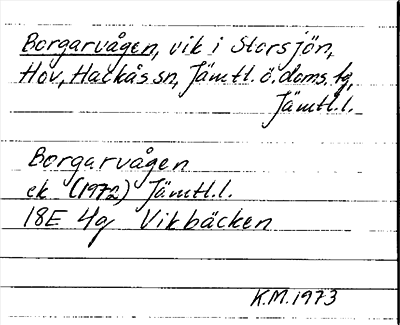 Borgarvågen, vik i Storsjön,
Hov, Hackås sn, Jämtl. ö. doms. tg,
Jämtl. l.
Borgarvågen
ek (1972) Jämtl. l.
18E 4g Vikbäcken
K.M. 1973